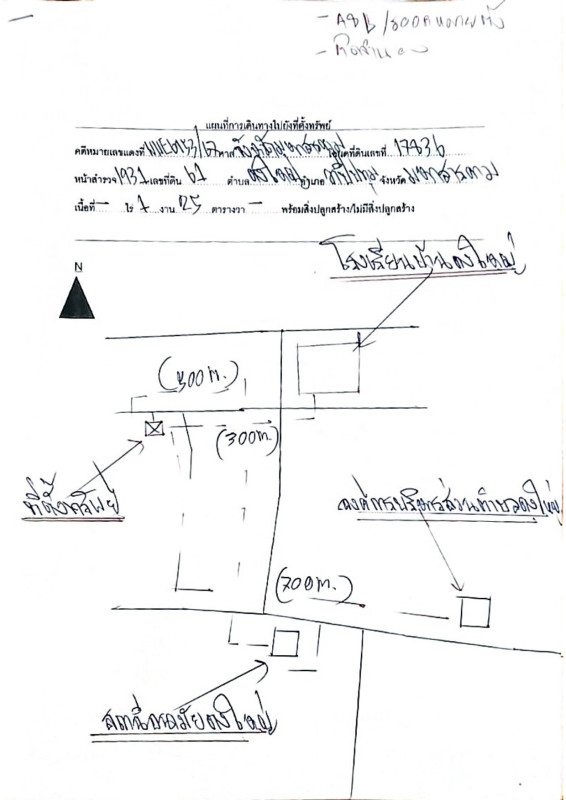 แผนที่การเดินทางไปยังที่ตั้งทรัพย์
คดีหมายเลขแดงที่ ศาล จังหวัดมหาสารคาม โฉนดที่ดินเลขที่ 17836
หน้าสำรวจ 1931 เลขที่ดิน 61 ตำบล ดงใหญ่ อำเภอ วาปีปทุม จังหวัด มหาสารคาม
เนื้อที่ - ไร่ 1 งาน 25 ตารางวา - พร้อมสิ่งปลูกสร้าง/ไม่มีสิ่งปลูกสร้าง
โรงเรียนบ้านดงใหญ่
N
(300m.)
ที่ตั้งทรัพย์
องค์การบริหารส่วนตำบลดงใหญ่
(700m.)
สถานีอนามัยดงใหญ่